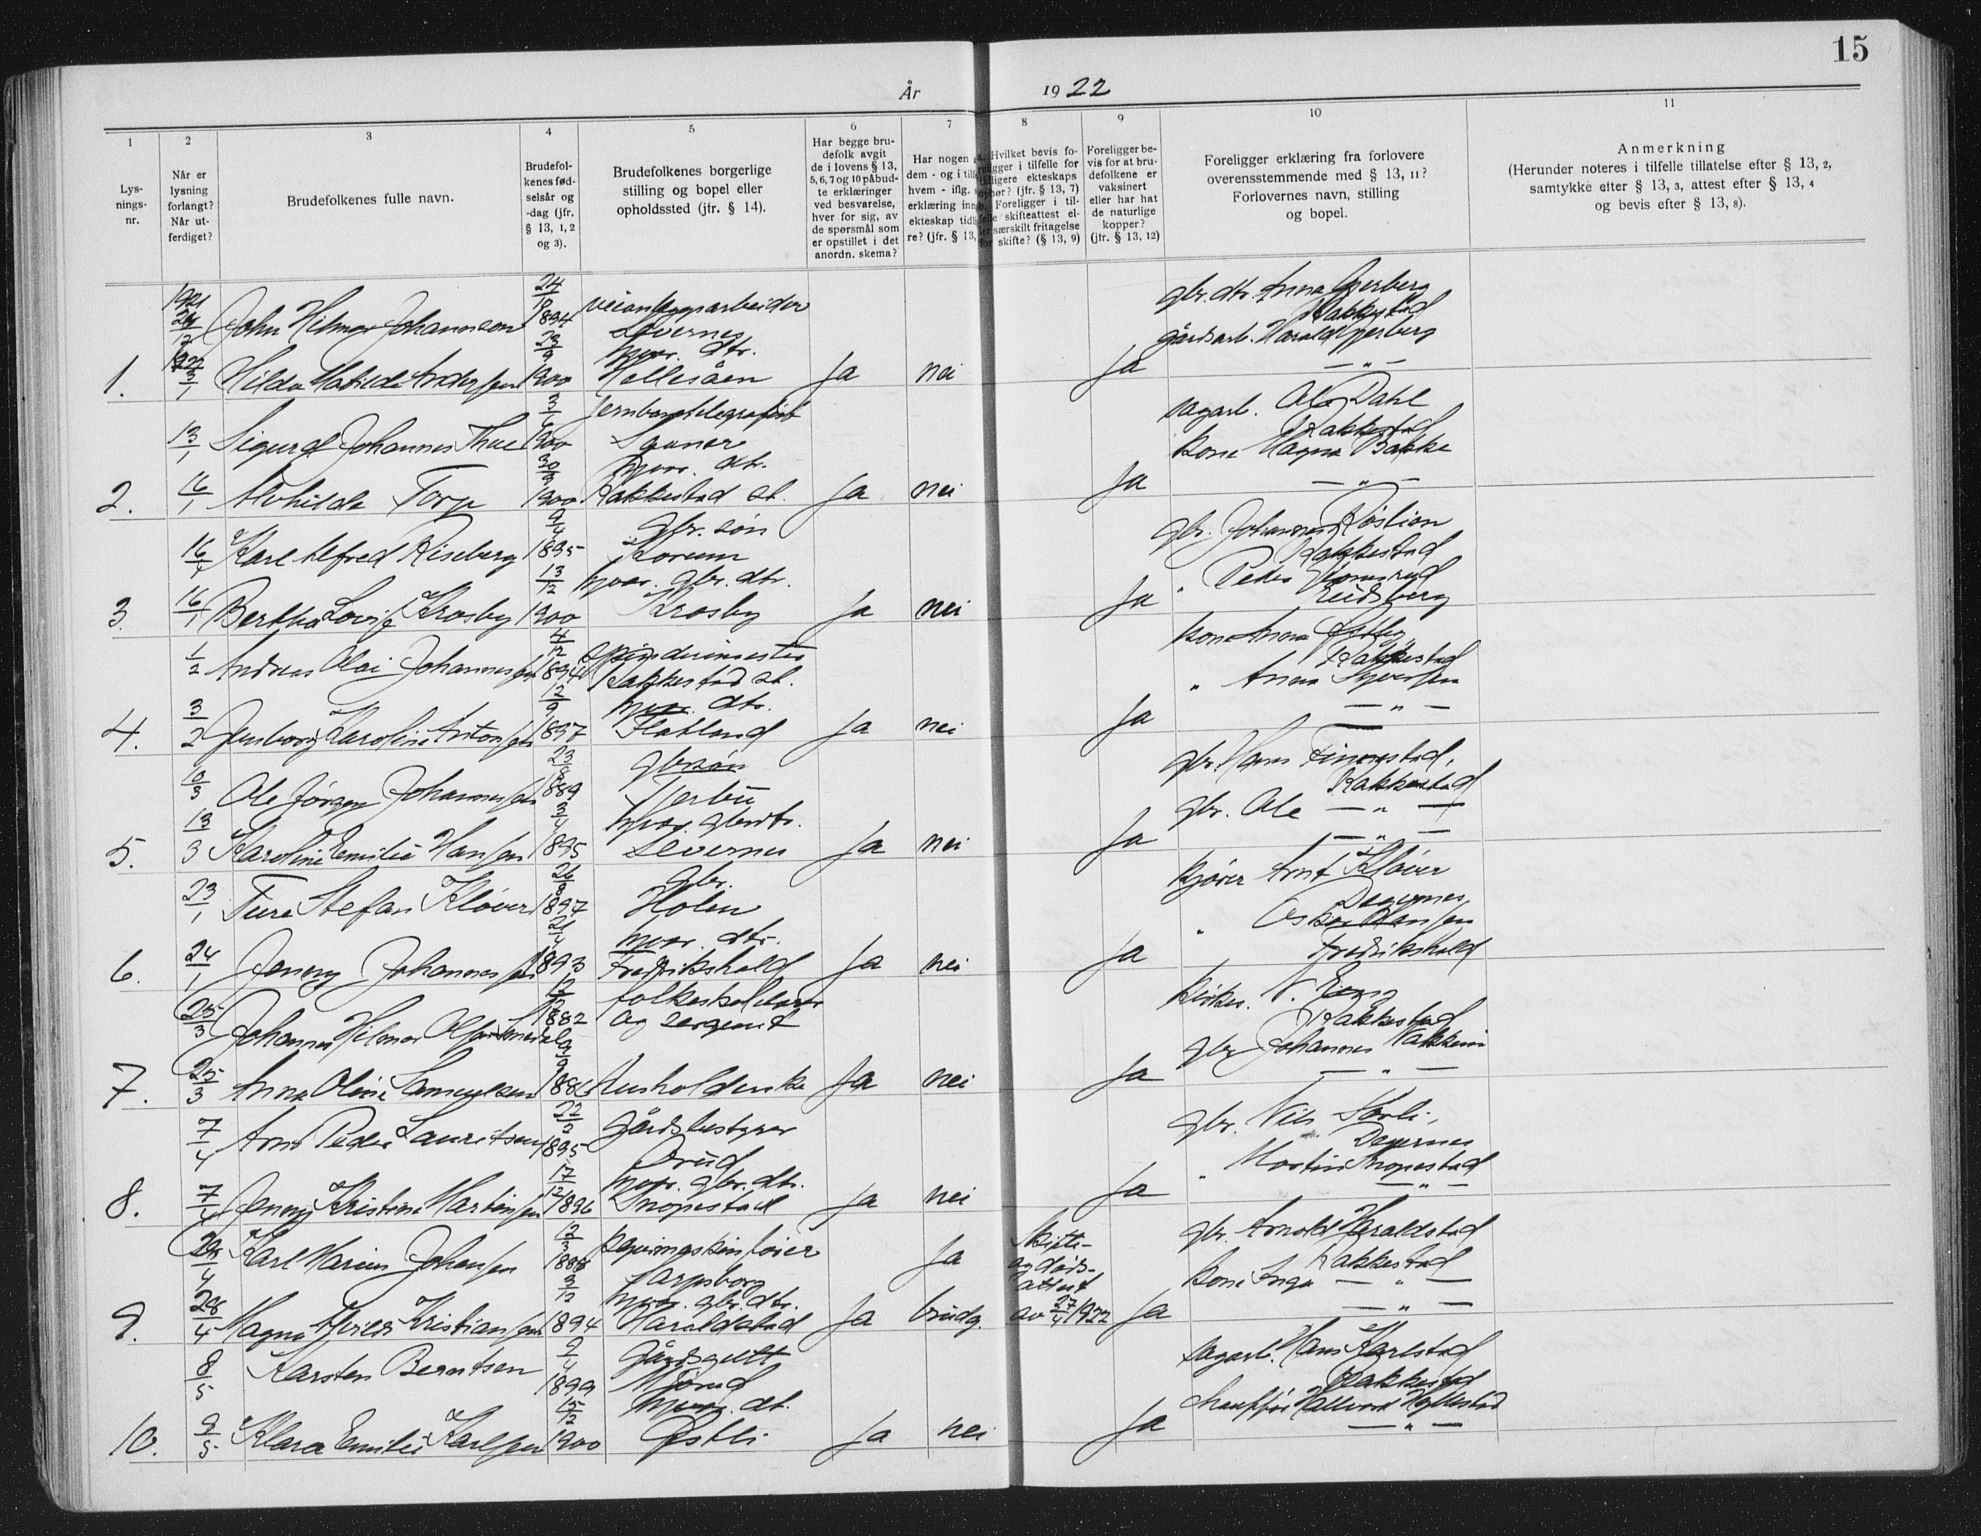 15
År 1922
1 2 3 4 5 6 7 8 9 10 11
Lys-
nings-
nr.
Når er
lysning
forlangt?
Når ut-
ferdiget?
Brudefolkenes fulle navn.
Brudefol-
kenes fød-
selsår og
-dag (jfr.
§ 13, 1, 2
og 3).
Brudefolkenes borgerlige
stilling og bopel eller
opholdssted (jfr. § 14).
Har begge bru-
defolk avgit
de i lovens § 13,
5, 6, 7 og 10 påbud-
te erklæringer
ved besvarelse,
hver for sig, av
de spørsmål som
er opstillet i det
anordn. skema?
Har nogen
dem - og i
hvem - iflg.
erklæring
ekteskap
re? (jfr. § 13,
Hvilket bevis fo-
i tilfelle for
ekteskaps
(jfr. § 13, 7)
Foreligger i til-
skifteattest el-
særskilt fritagelse
skifte? (§ 13, 9)
Foreligger be-
vis for at bru-
defolkene er
vaksinert
eller har hat
de naturlige
kopper?
(jfr. § 13, 12)
Foreligger erklæring fra forlovere
overensstemmende med § 13, 11?
Forlovernes navn, stilling
og bopel.
Anmerkning
(Herunder noteres i tilfelle tillatelse efter § 13, 2,
samtykke efter § 13, 3, attest efter § 13, 4
og bevis efter § 13, 8).
1921 John Hilmar Johannesen 24 1894 veianlegsarbeider gbr. dtr. Anna
Rakkestad
gårdsarb. Harald
1. 1922 3/1 Hilda Matilde Andersen 1900 Hellesåen Ja nei Ja — " —
13/1 Sigurd Johannes Thue 3 1900 jernbanetelegrafist sagarb. Ole Dahl
Rakkestad
Kone Magna Bakke
2. 16/1 Alvhilde Torp 30 1900 hjvær. dtr. Rakkestad st. Ja nei Ja — " —
16/1 Karl Alfred Riseberg 9/4 1895 gbr. søn gbr. Johannes
Rakkestad
3. 16/1 Bertha Lovise Krosby 13/12 1900 hjvær. gbr. dtr. Krosby Ja nei Ja " Peder
Eidsberg
1/2 Andreas Olai Johannessen 4/12 1894 spinderimester Rakkestad st. Kone Anna
Rakkestad
" Anna Syversen
4. 3/2 Karoline Antonsen 12/9 1897 hjvær. dtr. Flatland Ja nei Ja — " —
10/3 Ole Jørgen Johannessen 23 1889 gbrsøn gbr. Hans Finnestad,
Rakkestad
gbr. Ole — " —
5. 13/3 Karoline Emilie Hansen 3/4 1895 hjvær. gbrdtr. Ja nei Ja — " —
23/1 Ture Stefan Kløver 26 1897 gbr. Holen kjører Arnt Kløver
Degernes
" Oskar Hansen
6. 24/1 Jenny Johannessen 21 1893 hjvær. dtr. Fredrikshald Ja nei Ja Fredrikshald
25/3 Johannes Hilmar Olsen 12 1882 folkeskolelærer og sergeant kirkes. N.
Rakkestad
gbr Johannes
7. 25/3 Anna Oline Samuelsen 9 1886 Husholderske Ja nei Ja — " —
7/4 Arnt Peder Lauritsen 22 1895 gårdsbestyrer gbr. Nils
Degernes
8. 7/4 Jenny Kristine Martinsen 17/12 1896 hjvær. gbr. dtr. Snopestad Ja nei Ja " Martin Snopestad
— " —
Karl Marius Johansen 12/3 1888 Sarpsborg Ja Skifte- gbr. Arnold Haraldstad
og døds- Rakkestad
attest Kone Inga — " —
9. 28/4 Magna Kristiansen 3/12 1894 hjvær. gbr. dtr. Haraldstad Ja brudg. av 27/4 1922 Ja — " —
8/5 Karsten Berntsen 2/4 1899 Gårdsgutt sagarb. Hans Karlstad
Rakkestad
10. 9/5 Klara Emilie Karlsen 15/12 1900 hjvær. dt. Østli Ja nei Ja chauffør Hallvard
— " —